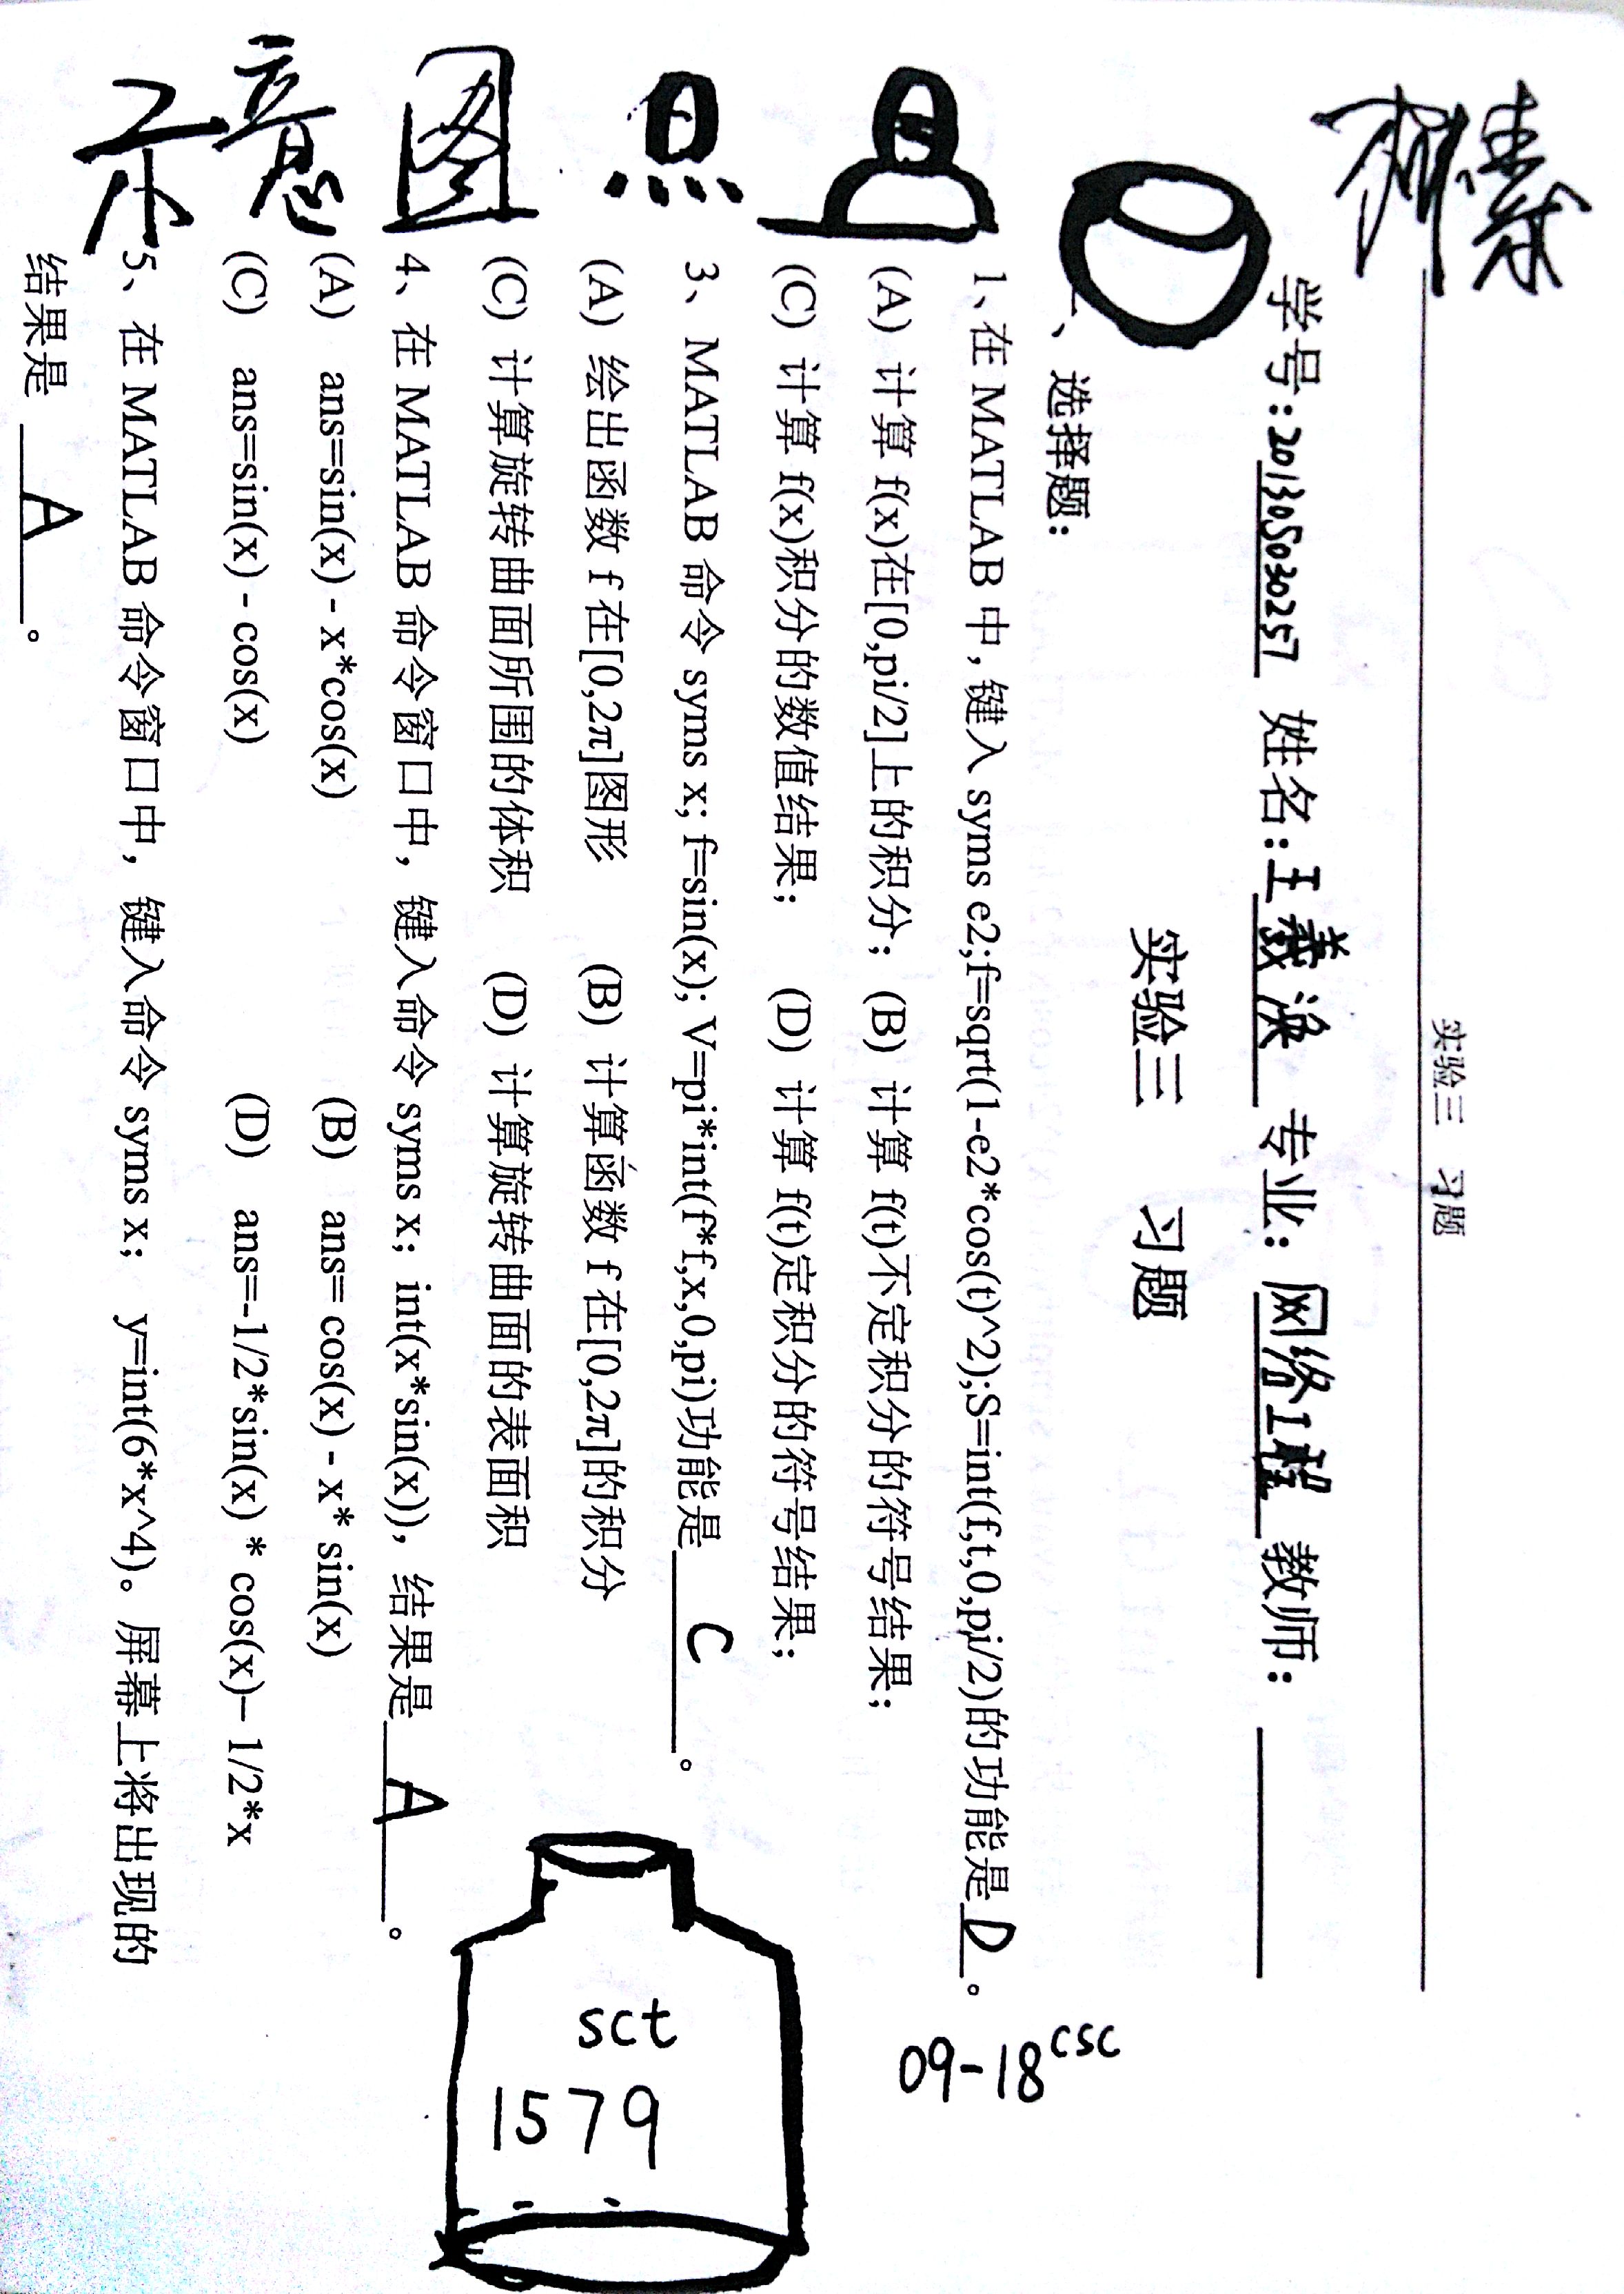 实验三 习题
学号:201305030257 姓名:王羲涣 专业:网络工程 教师:
实验三 习题
、选择题:
1、在 MATLAB 中,键入 syms e2;f=sqrt(1-e2*cos(t)^2);S=int(f,t,0,pi/2)的功能是 D 。
(A) 计算 f(x)在[0,pi/2]上的积分; (B) 计算 f(t)不定积分的符号结果;
(C) 计算 f(x)积分的数值结果; (D) 计算 f(t)定积分的符号结果;
3、MATLAB 命令 syms x; f=sin(x); V=pi*int(f*f,x,0,pi)功能是 C 。
(A) 绘出函数 f 在[0,2π]图形 (B) 计算函数 f 在[0,2π]的积分
(C) 计算旋转曲面所围的体积 (D) 计算旋转曲面的表面积
4、在 MATLAB 命令窗口中, 键入命令 syms x; int(x*sin(x)), 结果是 A 。
(A) ans=sin(x) - x*cos(x) (B) ans= cos(x) - x* sin(x)
(C) ans=sin(x) - cos(x) (D) ans=-1/2*sin(x) * cos(x)– 1/2*x
5、在 MATLAB 命令窗口中, 键入命令 syms x; y=int(6*x^4)。屏幕上将出现的
结果是 A 。
图
意
示
09-18csc
sct
1579